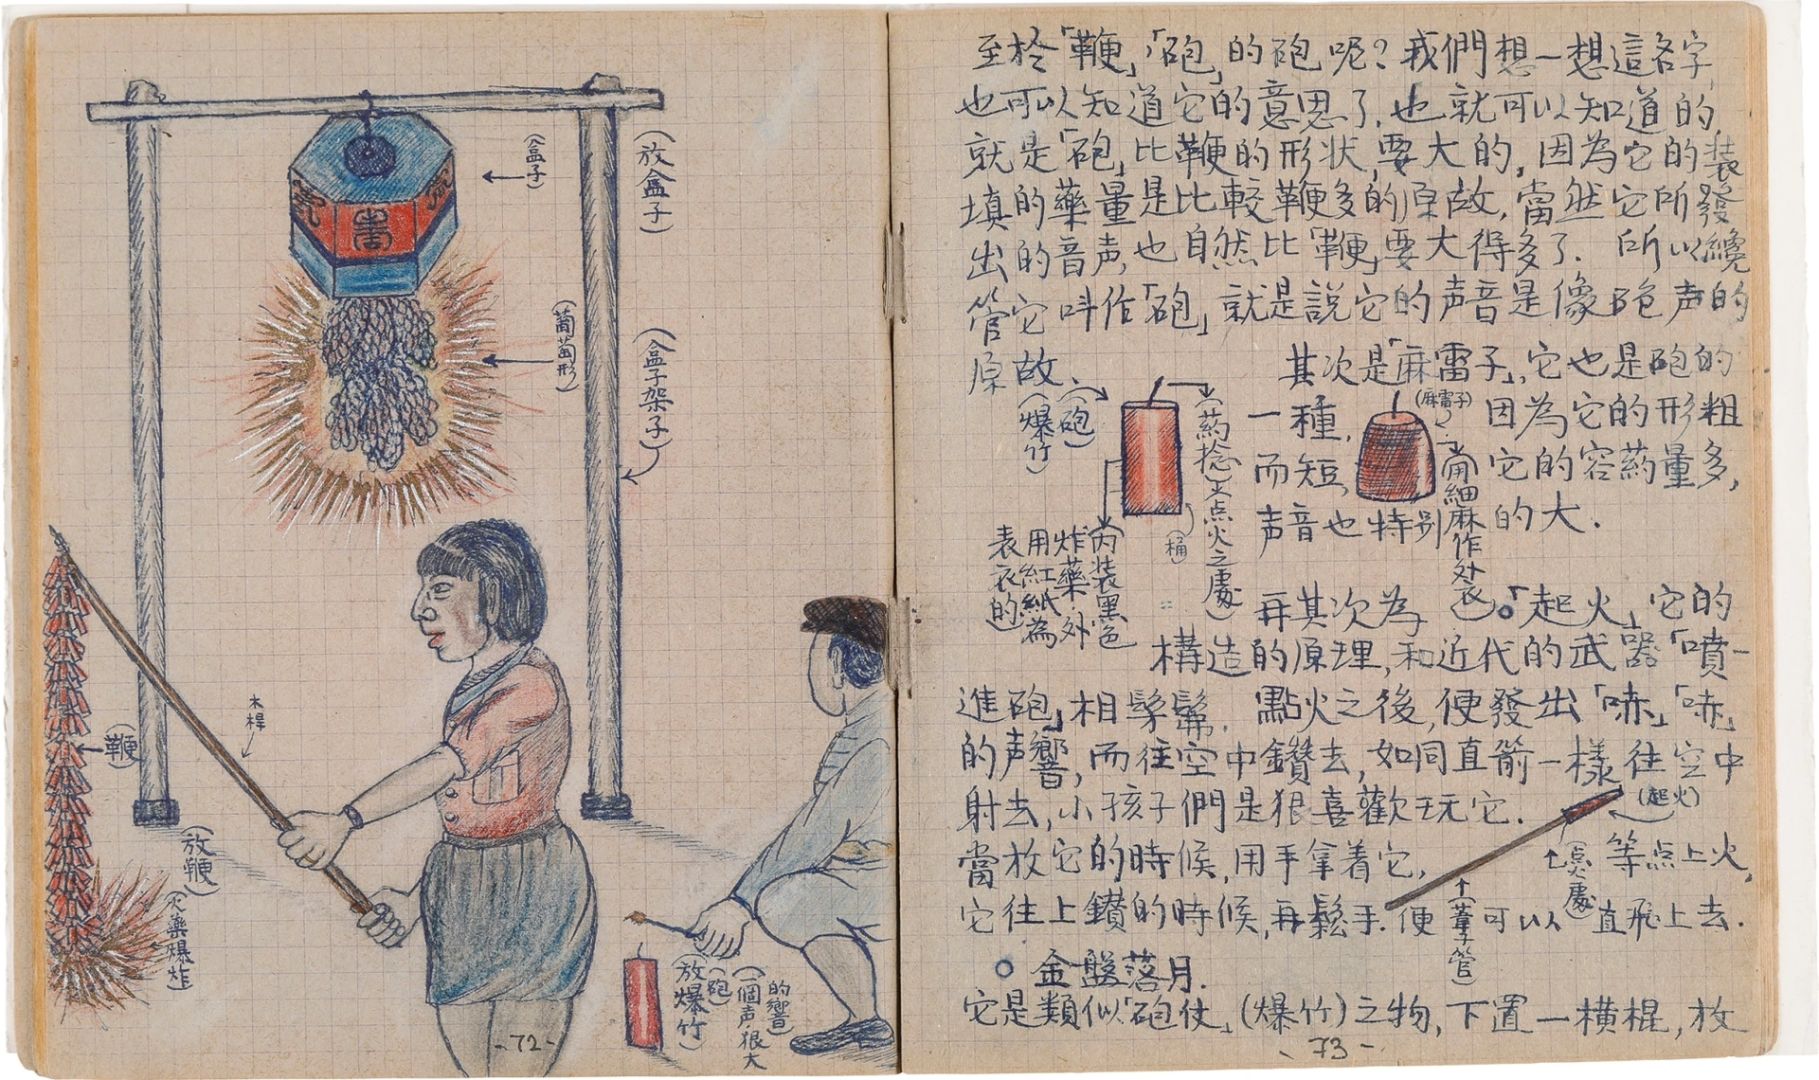 (盒子)
(放盒子)
(葡萄形)
(盒子架子)
木桿
(鞭)
(放鞭)
火藥爆炸
(放爆竹)
(砲)
(一個声,很大
的響音)
-72-
至於「鞭」,「砲」的砲呢?我們想一想這名字,
也可以知道它的意思了,也就可以知道的
就是「砲」比鞭的形狀,要大的,因為它的裝
填的藥量是比較鞭多的原故,當然它所發
出的音声,也自然比「鞭」要大得多了.所以纔
管它叫作「砲」就是說它的声音是像砲声的
原故、
其次是「麻雷子」,它也是砲的
一種,因為它的形粗
而短,它的容葯量多,
声音也特别的大.
(砲)
(爆竹)
(葯捻)点火之處)
(桶)
內裝黑色
炸藥.外
用紅紙為
表衣的
(麻雷子)
常細麻作外衣)
再其次為。「起火」它的
構造的原理,和近代的武器「噴-
進砲」相髣髴.點火之後,便發出「哧」「哧」
的声響,而往空中鑽去,如同直箭一樣往空中
射去,小孩子們是狠喜歡玩它.
當放它的時候,用手拿着它,等点上火,
它往上鑽的時候,再鬆手.便可以一直飛上去.
(起火)
点火處
(葦子管)
○金盤落月.
它是類似「砲仗」(爆竹)之物,下置一橫棍,放
-73-